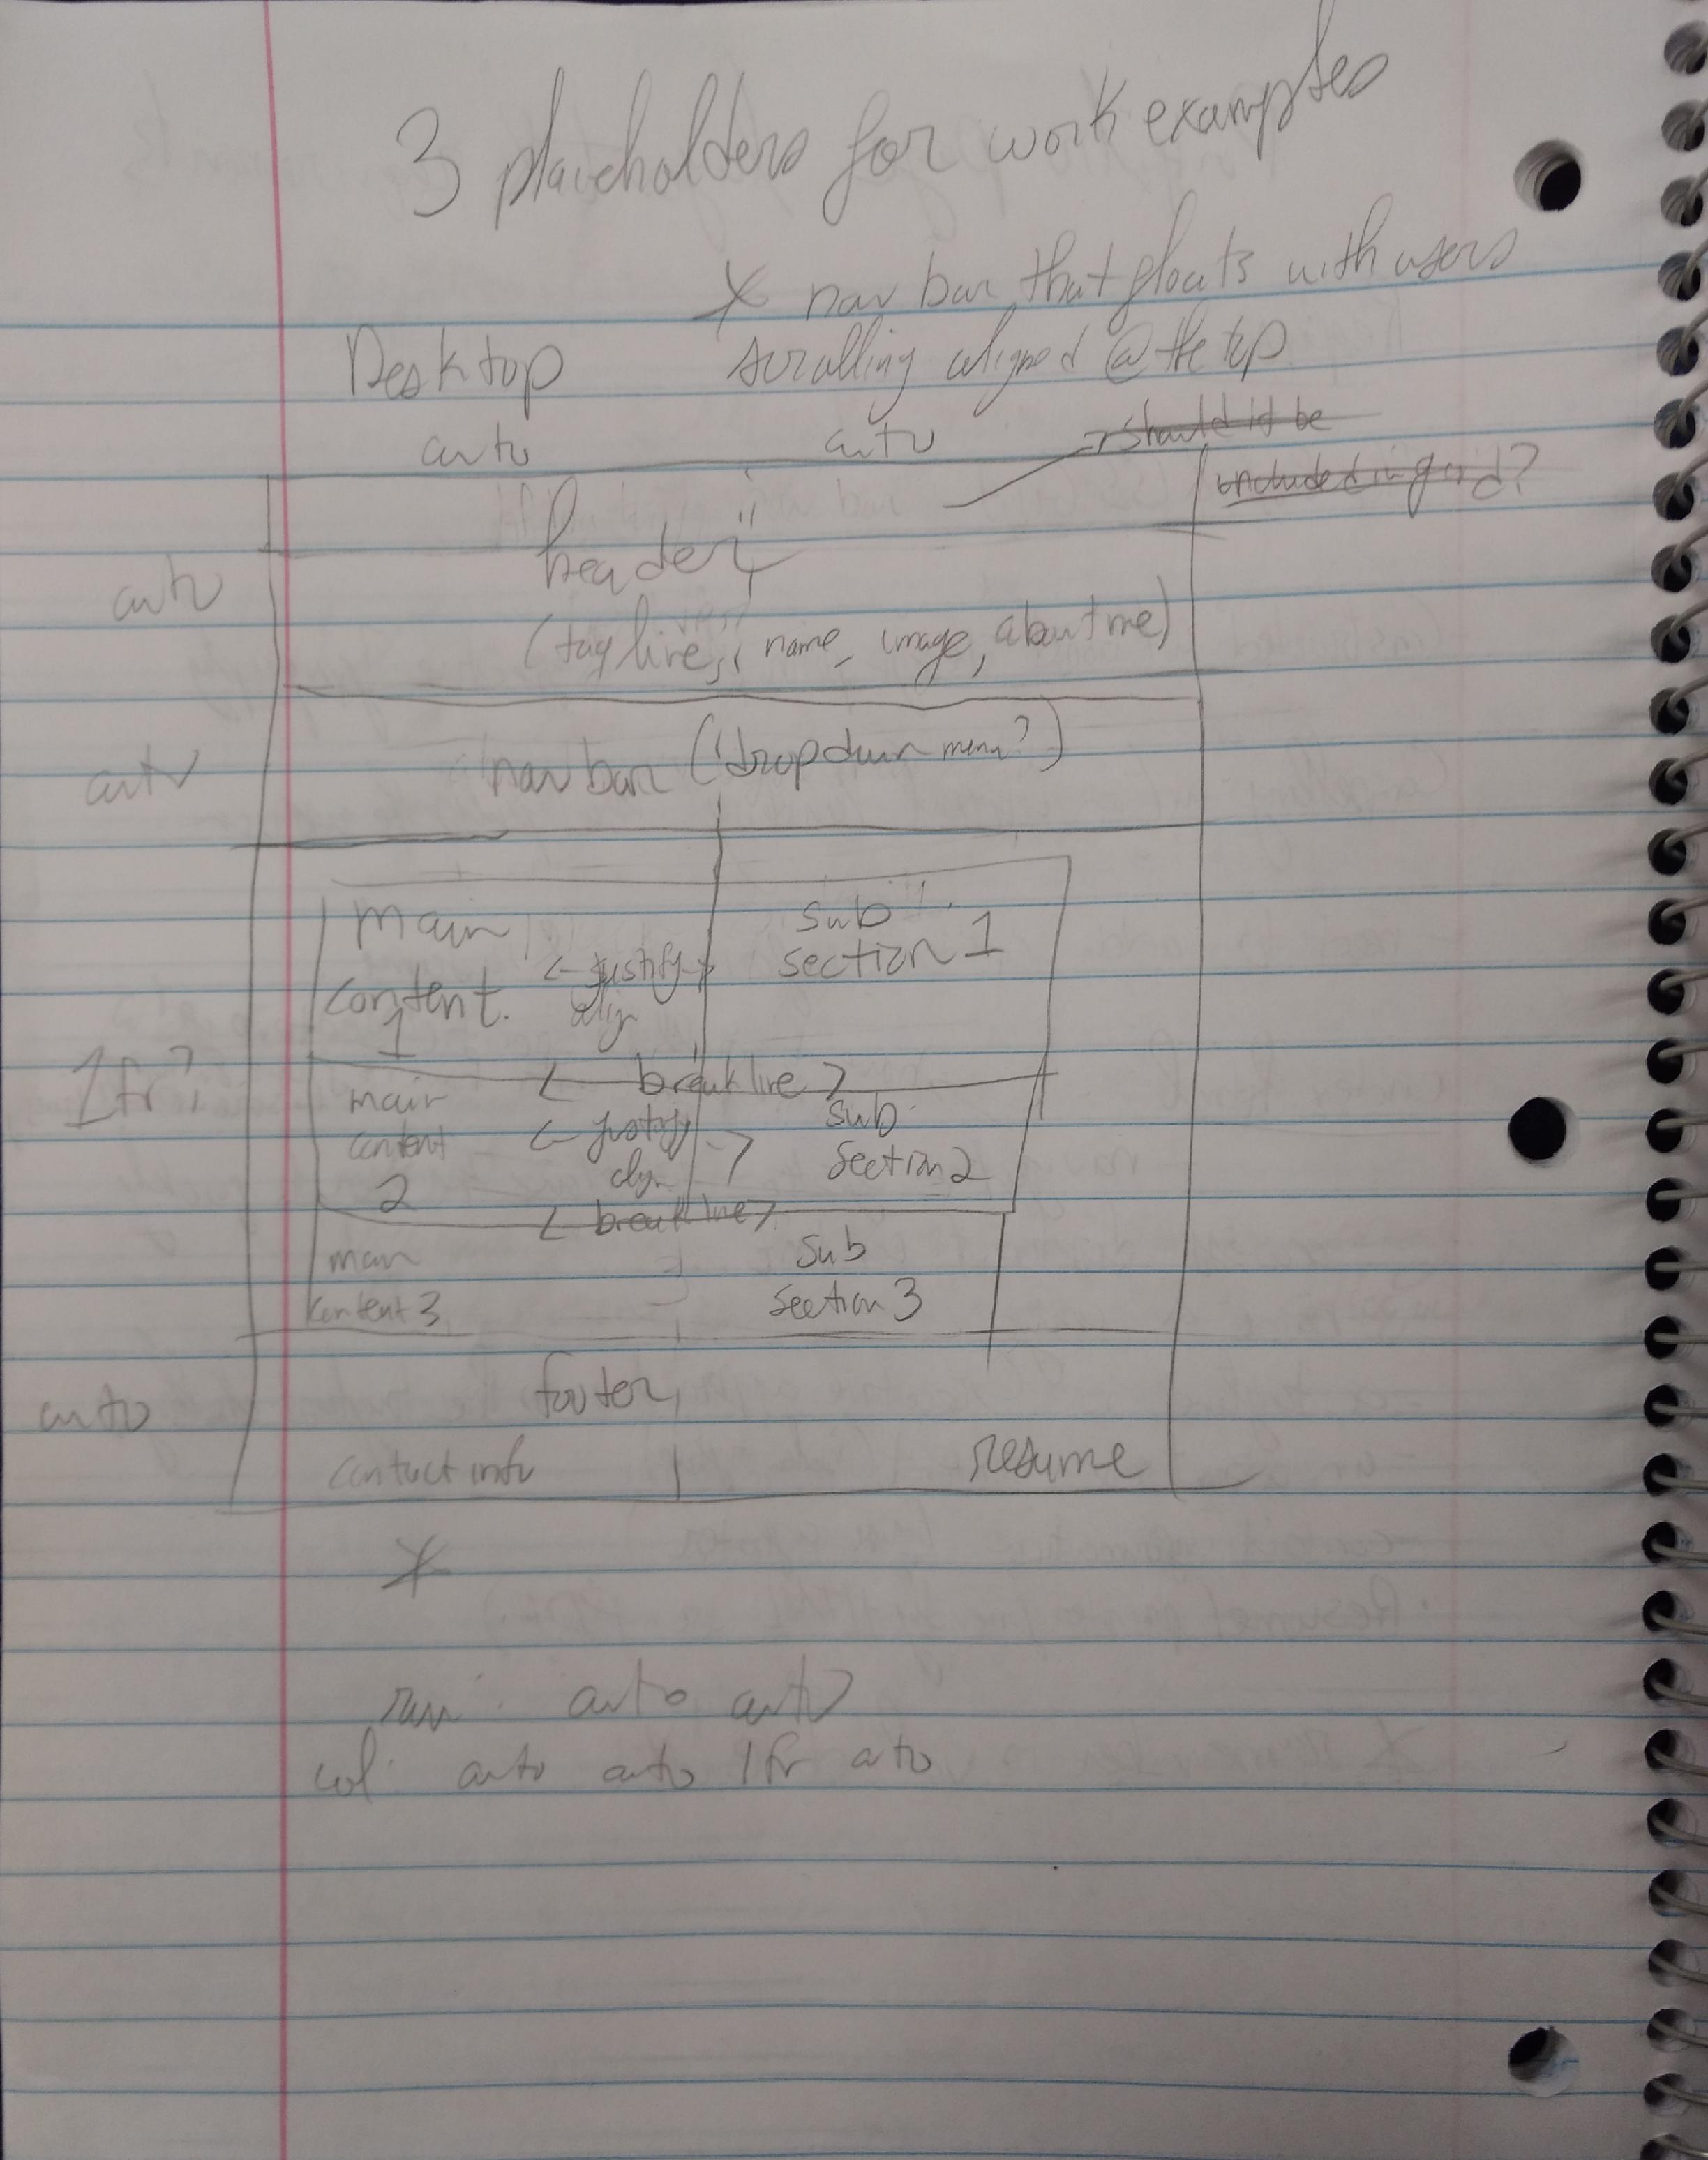 3 placeholders for work examples
* nav bar that floats with users
scrolling aligned @ the top
Desktop
auto auto
should it be
included in grid?
header
auto
(tag line, name, image, about me)
auto
nav bar (dropdown menu?)
main
content.
1
<- justify ->
align
sub
section 1
1fr?
< break line >
main
content
2
<- justify ->
align
sub
section 2
< break line >
main
content 3
sub
section 3
auto
footer
contact info
resume
*
row: auto auto
col: auto auto 1fr auto